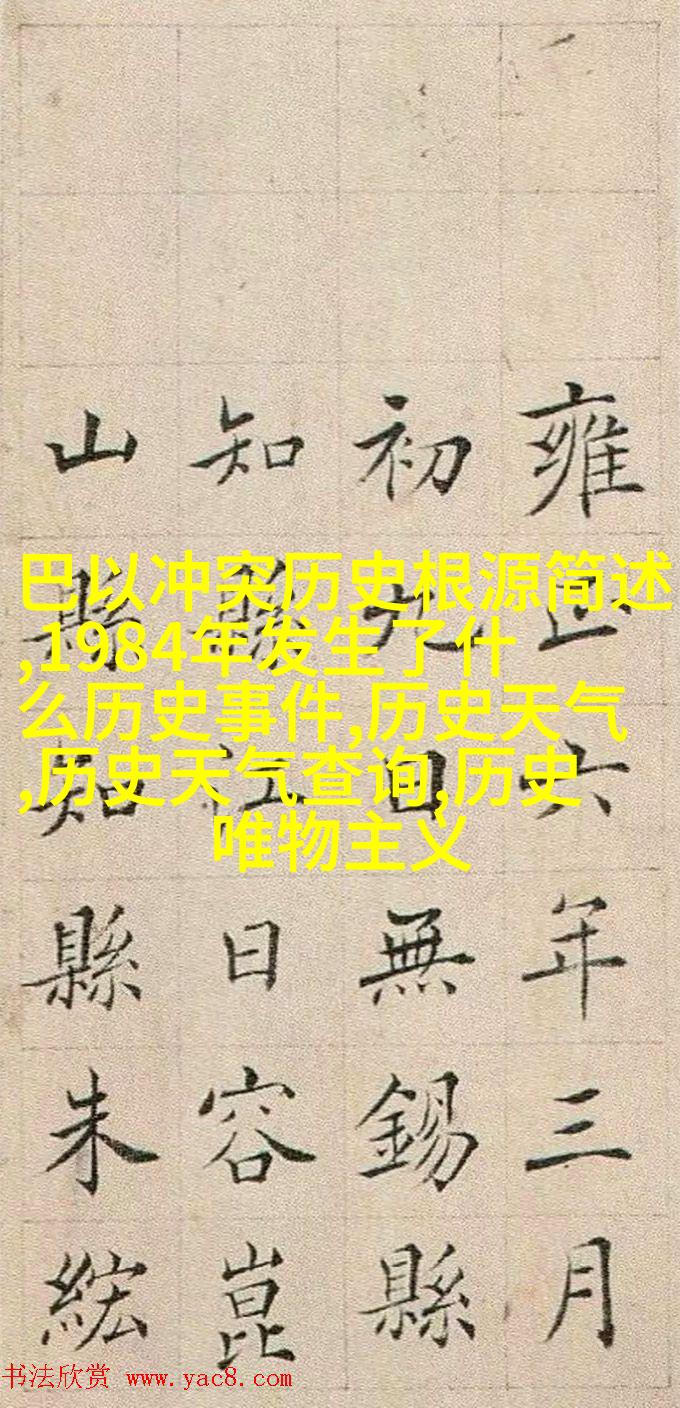 雍正六年三月
初九日無錫縣
知縣江日容崑
山縣知縣朱紘
巴以冲突历史根源简述
,1984年发生了什
么历史事件,历史天气
,历史天气查询,历史
唯物主义
书法欣赏 www.yac8.com